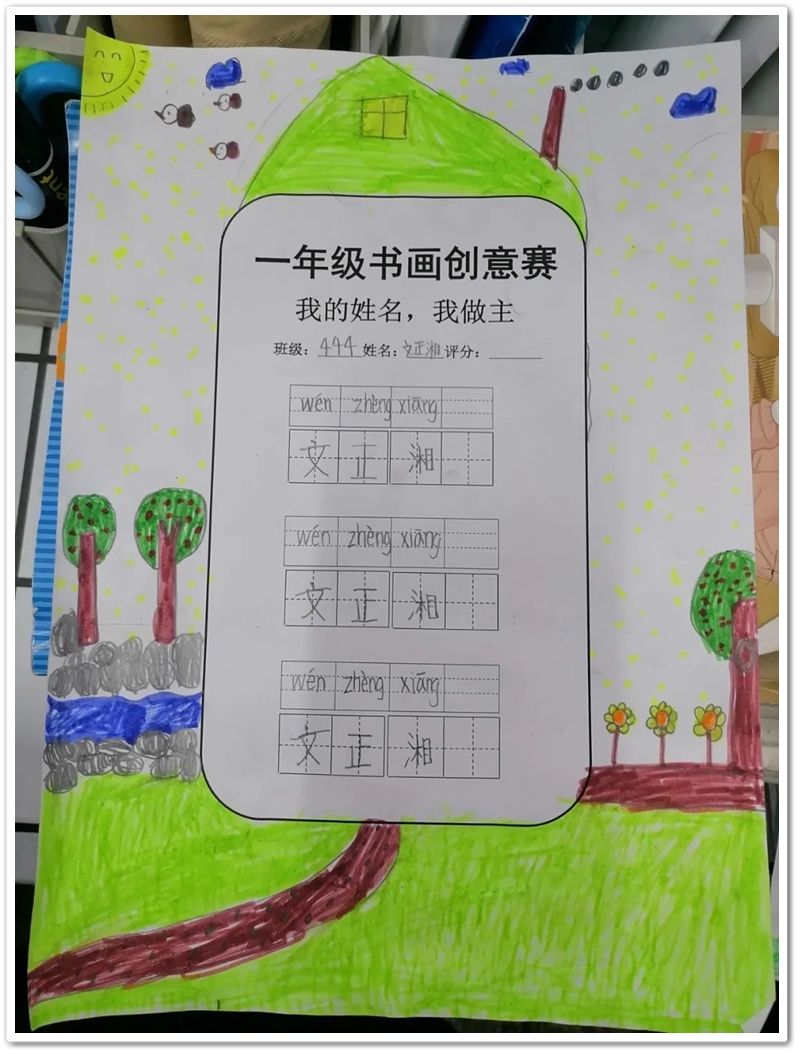 一年级书画创意赛
我的姓名，我做主
班级：444 姓名：文正湘 评分：
wén zhèng xiāng
文正湘
wén zhèng xiāng
文正湘
wén zhèng xiāng
文正湘